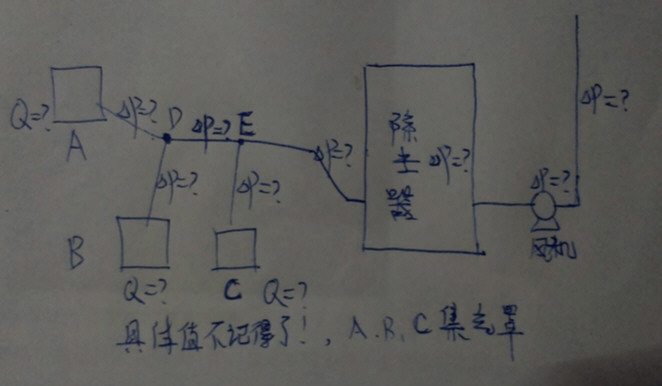 ΔP=?
Q=?
A
ΔP=?
D
ΔP=?
E
ΔP=?
除尘器
ΔP=?
ΔP=?
风机
ΔP=?
ΔP=?
B
Q=?
C
Q=?
具体值不记得了!, A.B.C集气罩